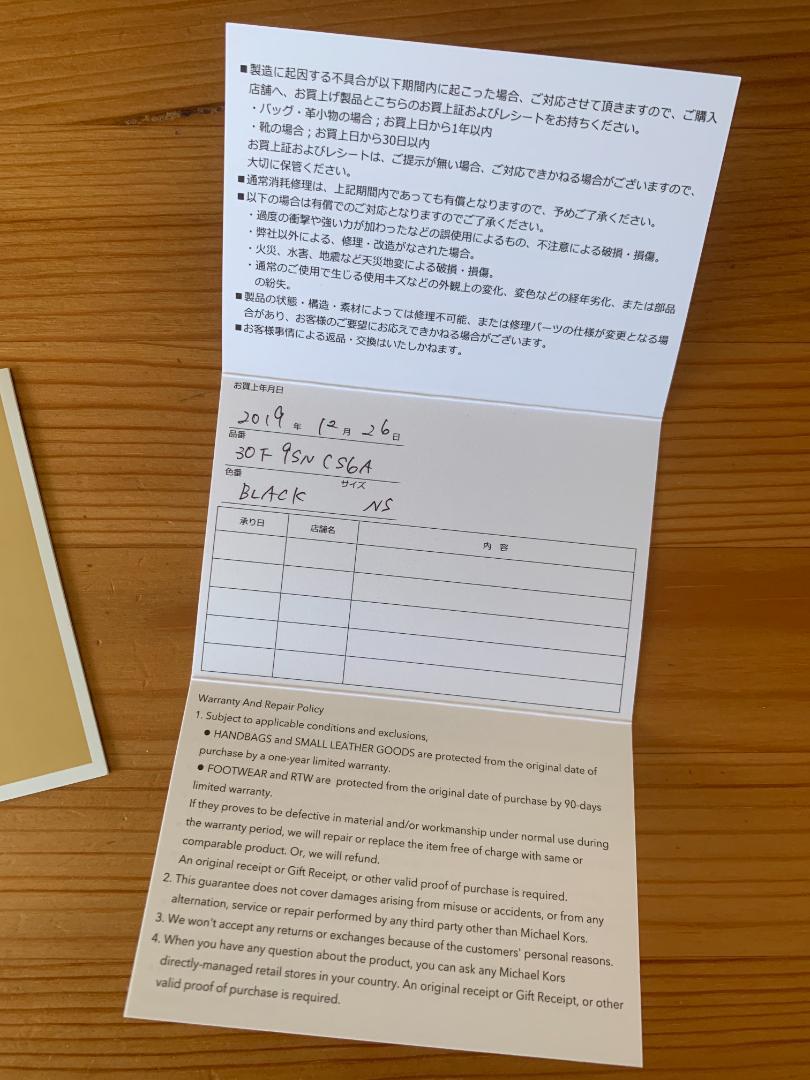 ■製造に起因する不具合が以下期間内に起こった場合、ご対応させて頂きますので、ご購入
店舗へ、お買上げ製品とこちらのお買上証およびレシートをお持ちください。
・バッグ・革小物の場合；お買上日から1年以内
・靴の場合；お買上日から30日以内
お買上証およびレシートは、ご提示が無い場合、ご対応できかねる場合がございますので、
大切に保管ください。
■通常消耗修理は、上記期間内であっても有償となりますので、予めご了承ください。
■以下の場合は有償でのご対応となりますのでご了承ください。
・過度の衝撃や強い力が加わったなどの誤使用によるもの、不注意による破損・損傷。
・弊社以外による、修理・改造がなされた場合。
・火災、水害、地震など天災地変による破損・損傷。
・通常のご使用で生じる使用キズなどの外観上の変化、変色などの経年劣化、または部品
の紛失。
■製品の状態・構造・素材によっては修理不可能、または修理パーツの仕様が変更となる場
合があり、お客様のご要望にお応えできかねる場合がございます。
■お客様事情による返品・交換はいたしかねます。
お買上年月日
2019 年 12 月 26 日
品番
30F 9SN CS6A
色番 サイズ
BLACK NS
承り日 店舗名 内 容
Warranty And Repair Policy
1. Subject to applicable conditions and exclusions,
● HANDBAGS and SMALL LEATHER GOODS are protected from the original date of
purchase by a one-year limited warranty.
● FOOTWEAR and RTW are protected from the original date of purchase by 90-days
limited warranty.
If they proves to be defective in material and/or workmanship under normal use during
the warranty period, we will repair or replace the item free of charge with same or
comparable product. Or, we will refund.
An original receipt or Gift Receipt, or other valid proof of purchase is required.
2. This guarantee does not cover damages arising from misuse or accidents, or from any
alternation, service or repair performed by any third party other than Michael Kors.
3. We won't accept any returns or exchanges because of the customers' personal reasons.
4. When you have any question about the product, you can ask any Michael Kors
directly-managed retail stores in your country. An original receipt or Gift Receipt, or other
valid proof of purchase is required.